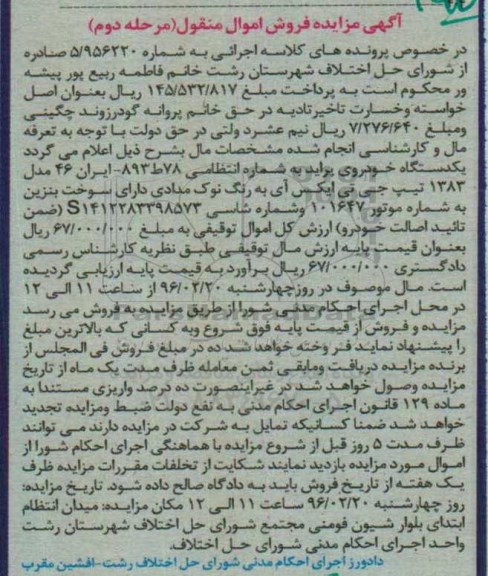 آگهی مزایده فروش اموال منقول(مرحله دوم)
در خصوص پرونده های کلاسه اجرائی به شماره ۵/۹۵۶۲۲۰ صادره
از شورای حل اختلاف شهرستان رشت خانم فاطمه ربیع پور پیشه
ور محکوم است به پرداخت مبلغ ۱۴۵/۵۳۲/۸۱۷ ریال بعنوان اصل
خواسته وخسارت تاخیرتادیه در حق خانم پروانه گودرزوند چگینی
ومبلغ ۷/۲۷۶/۶۴۰ ریال نیم عشرد ولتی در حق دولت با توجه به تعرفه
مال و کارشناسی انجام شده مشخصات مال بشرح ذیل اعلام می گردد
یکدستگاه خودروی پراید به شماره انتظامی ۷۸ط۸۹۳-ایران ۴۶ مدل
۱۳۸۳ تیپ جی تی ایکس آی به رنگ نوک مدادی دارای سوخت بنزین
به شماره موتور ۱۰۱۶۴۷ وشماره شاسی S۱۴۱۲۲۸۳۳۹۸۵۷۳ (ضمن
تائید اصالت خودرو) ارزش کل اموال توقیفی به مبلغ ۶۷/۰۰۰/۰۰۰ ریال
بعنوان قیمت پایه ارزش مال توقیفی طبق نظریه کارشناس رسمی
دادگستری ۶۷/۰۰۰/۰۰۰ ریال برآورد به قیمت پایه ارزیابی گردیده
است. مال موصوف در روزچهارشنبه ۹۶/۰۲/۲۰ از ساعت ۱۱ الی ۱۲
در محل اجرای احکام مدنی شورا از طریق مزایده به فروش می رسد
مزایده و فروش از قیمت پایه فوق شروع وبه کسانی که بالاترین مبلغ
را پیشنهاد نمایند فروخته خواهد شد ده در مبلغ فروش فی المجلس از
برنده مزایده دریافت ومابقی ثمن معامله ظرف مدت یک ماه از تاریخ
مزایده وصول خواهد شد در غیراینصورت ده درصد واریزی مستندا به
ماده ۱۲۹ قانون اجرای احکام مدنی به نفع دولت ضبط ومزایده تجدید
خواهد شد ضمنا کسانیکه تمایل به شرکت در مزایده دارند می توانند
ظرف مدت ۵ روز قبل از شروع مزایده با هماهنگی اجرای احکام شورا از
اموال مورد مزایده بازدید نمایند شکایت از تخلفات مقررات مزایده ظرف
یک هفته از تاریخ فروش باید به دادگاه صالح داده شود. تاریخ مزایده:
روز چهارشنبه ۹۶/۰۲/۲۰ ساعت ۱۱ الی ۱۲ مکان مزایده: میدان انتظام
ابتدای بلوار شیون فومنی مجتمع شورای حل اختلاف شهرستان رشت
واحد اجرای احکام مدنی شورای حل اختلاف.
دادورز اجرای احکام مدنی شورای حل اختلاف رشت-افشین مقرب